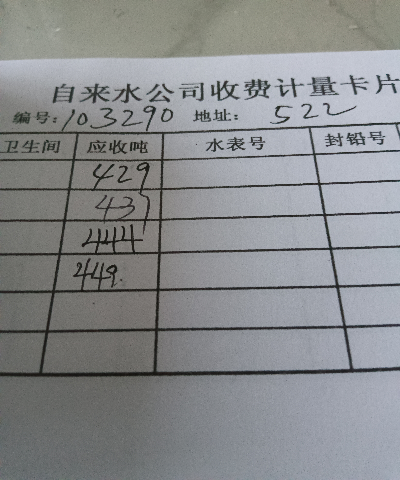 自来水公司收费计量卡片
编号:103290 地址: 522
卫生间 应收吨 水表号 封铅号
429
437
444
449